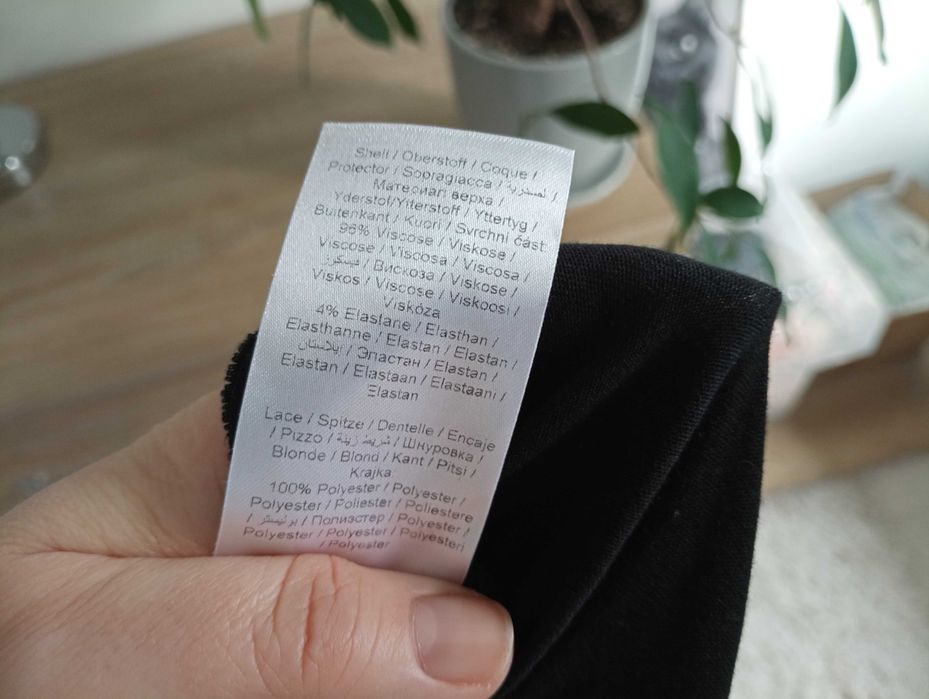 Shell / Oberstoff / Coque /
Protector / Sopragiacca / /
Материал верха /
Yderstof/Ytterstoff / Yttertyg /
Buitenkant / Kuori / Svrchní část:
96% Viscose / Viskose /
Viscose / Viscosa / Viscosa /
فيسكوز / Вискоза / Viskose /
Viskos / Viscose / Viskoosi /
Viskóza
4% Elastane / Elasthan /
Elasthanne / Elastan / Elastan /
إيلاستان / Эластан / Elastan /
Elastan / Elastaan / Elastaani /
Elastan
Lace / Spitze / Dentelle / Encaje
/ Pizzo / شريط زينة / Шнуровка /
Blonde / Blond / Kant / Pitsi /
Krajka:
100% Polyester / Polyester /
Polyester / Poliester / Poliestere
/ بوليستر / Полиэстер / Polyester /
Polyester / Polyester / Polyesteri
/ Polyester